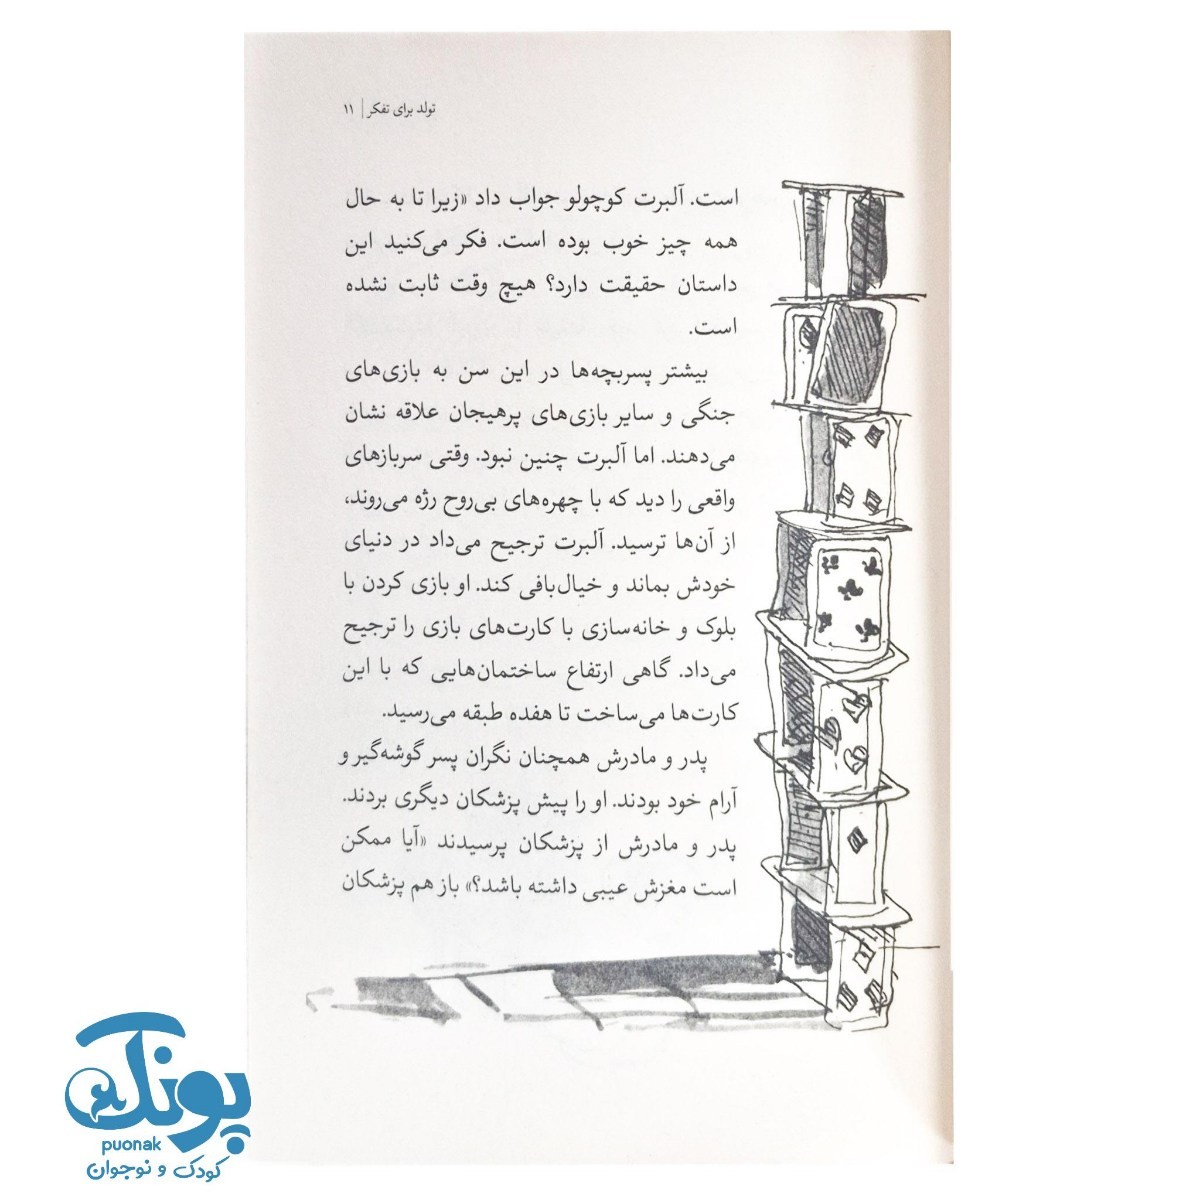 تولد برای تفکر | ۱۱
است. آلبرت کوچولو جواب داد «زیرا تا به حال
همه چیز خوب بوده است. فکر می‌کنید این
داستان حقیقت دارد؟ هیچ وقت ثابت نشده
است.
بیشتر پسربچه‌ها در این سن به بازی‌های
جنگی و سایر بازی‌های پرهیجان علاقه نشان
می‌دهند. اما آلبرت چنین نبود. وقتی سربازهای
واقعی را دید که با چهره‌های بی‌روح رژه می‌روند،
از آن‌ها ترسید. آلبرت ترجیح می‌داد در دنیای
خودش بماند و خیال‌بافی کند. او بازی کردن با
بلوک و خانه‌سازی با کارت‌های بازی را ترجیح
می‌داد. گاهی ارتفاع ساختمان‌هایی که با این
کارت‌ها می‌ساخت تا هفده طبقه می‌رسید.
پدر و مادرش همچنان نگران پسر گوشه‌گیر و
آرام خود بودند. او را پیش پزشکان دیگری بردند.
پدر و مادرش از پزشکان پرسیدند «آیا ممکن
است مغزش عیبی داشته باشد؟» باز هم پزشکان
پونک
puonak
کودک و نوجوان